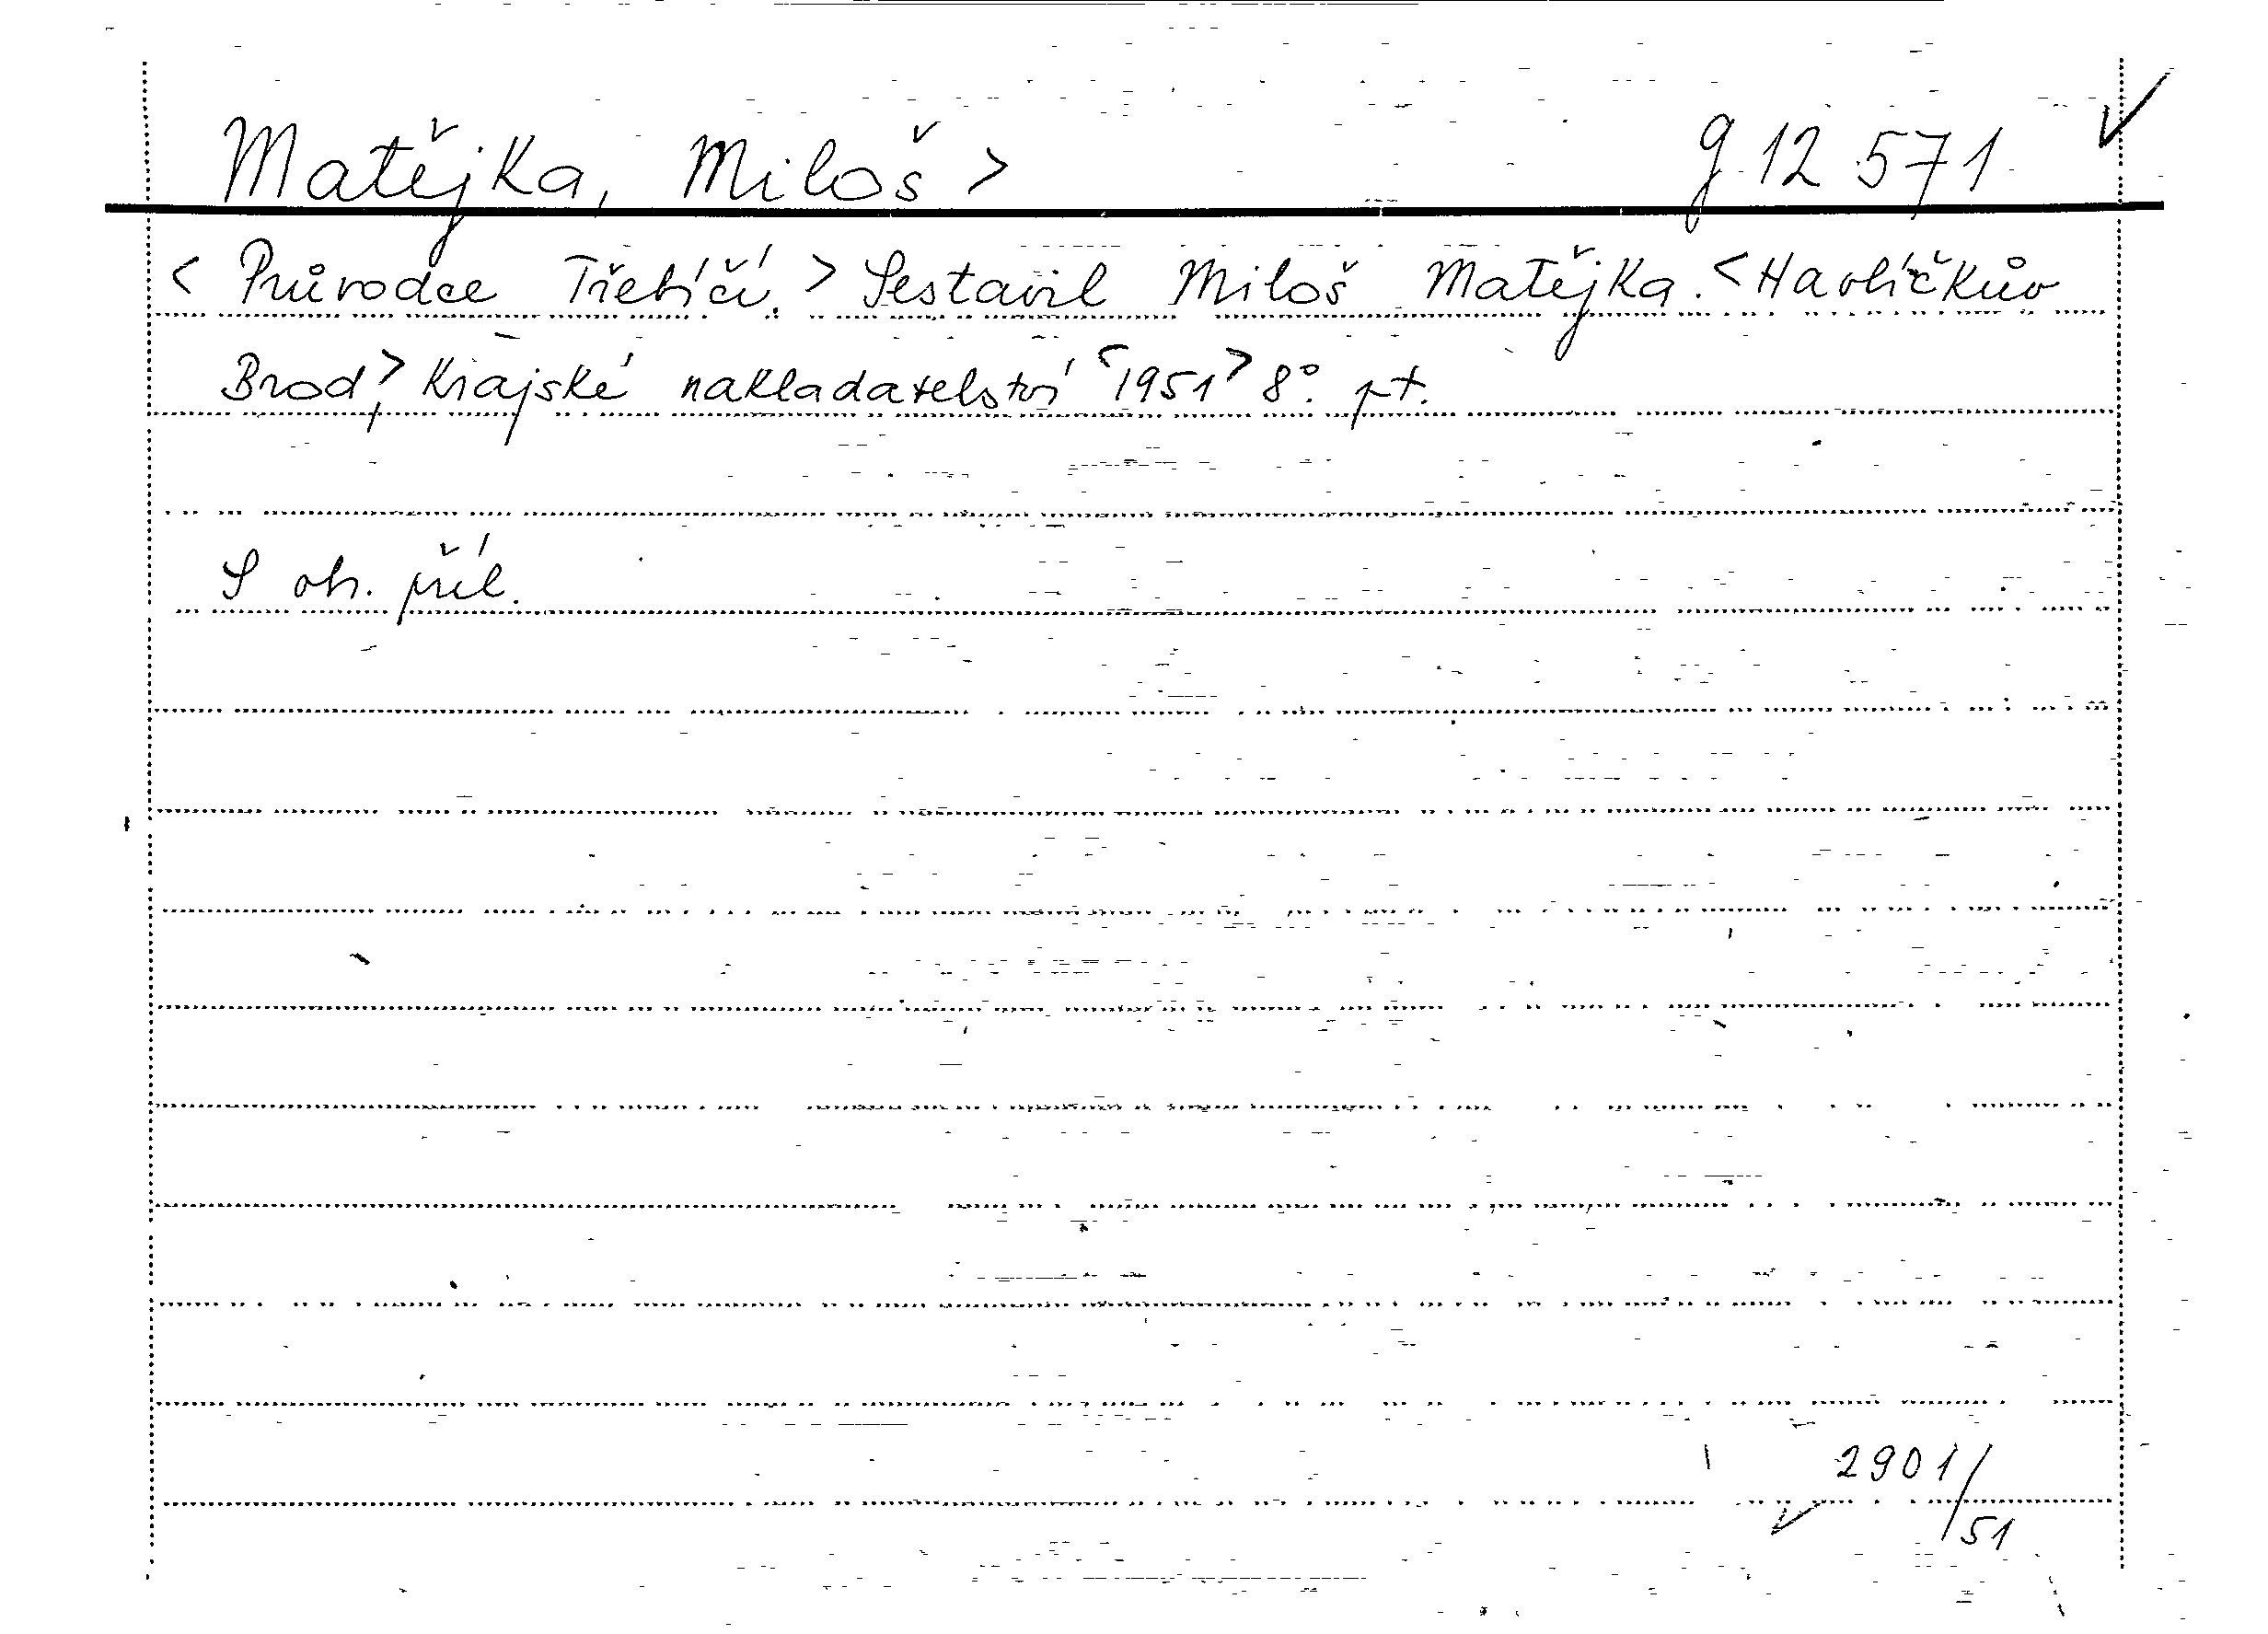 Matějka, Miloš > g 12 571
< Průvodce Třebíčí. > Sestavil Miloš Matějka. < Havlíčkův
Brod, > Krajské nakladatelství <1951> 8°. pt.
S ob. příl.
2901/51